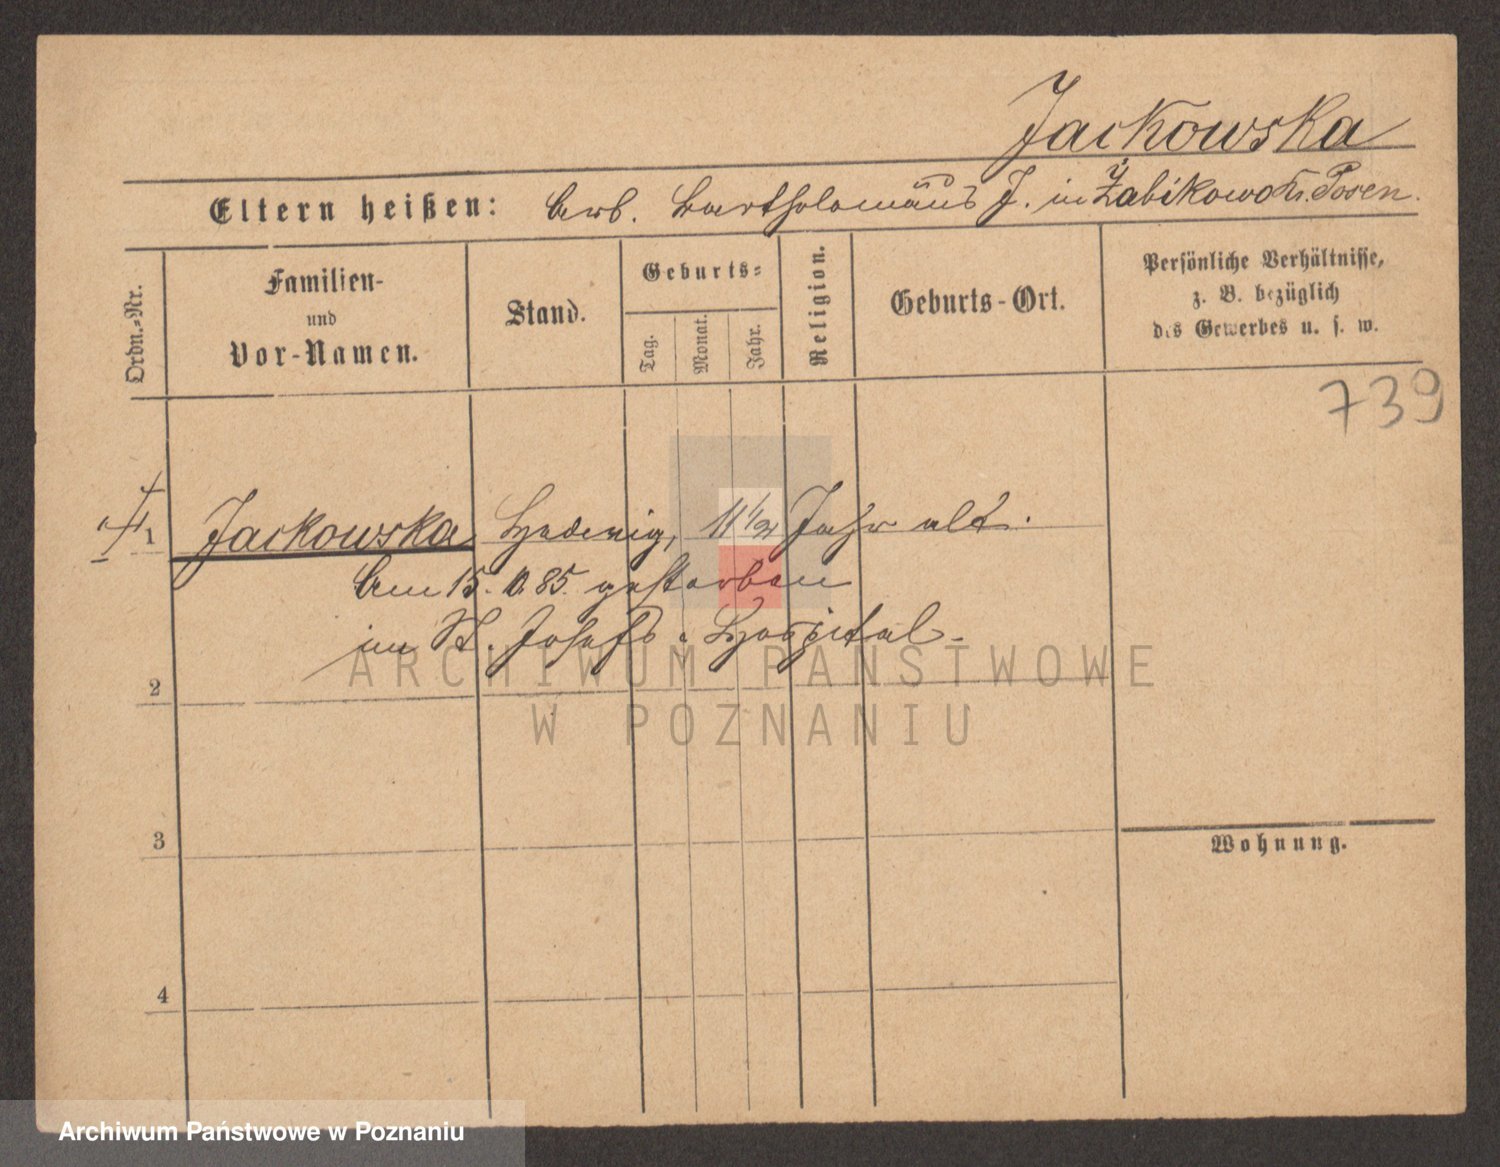 Jackowska
Eltern heißen: Arb. Bartholomäus J. in Żabikowo Kr. Posen.
Ordn.-Nr.
Familien-
und
Vor-Namen.
Stand.
Geburts-
Tag.
Monat.
Jahr.
Religion.
Geburts-Ort.
Persönliche Verhältnisse,
z. B. bezüglich
des Gewerbes u. s. w.
739
1 Jackowska Hedwig, 11 1/2 Jahr alt.
Am 15. 10. 85. gestorben
im St. Josefs-Hospital.
ARCHIWUM PAŃSTWOWE
W POZNANIU
2
3
Wohnung.
4
Archiwum Państwowe w Poznaniu